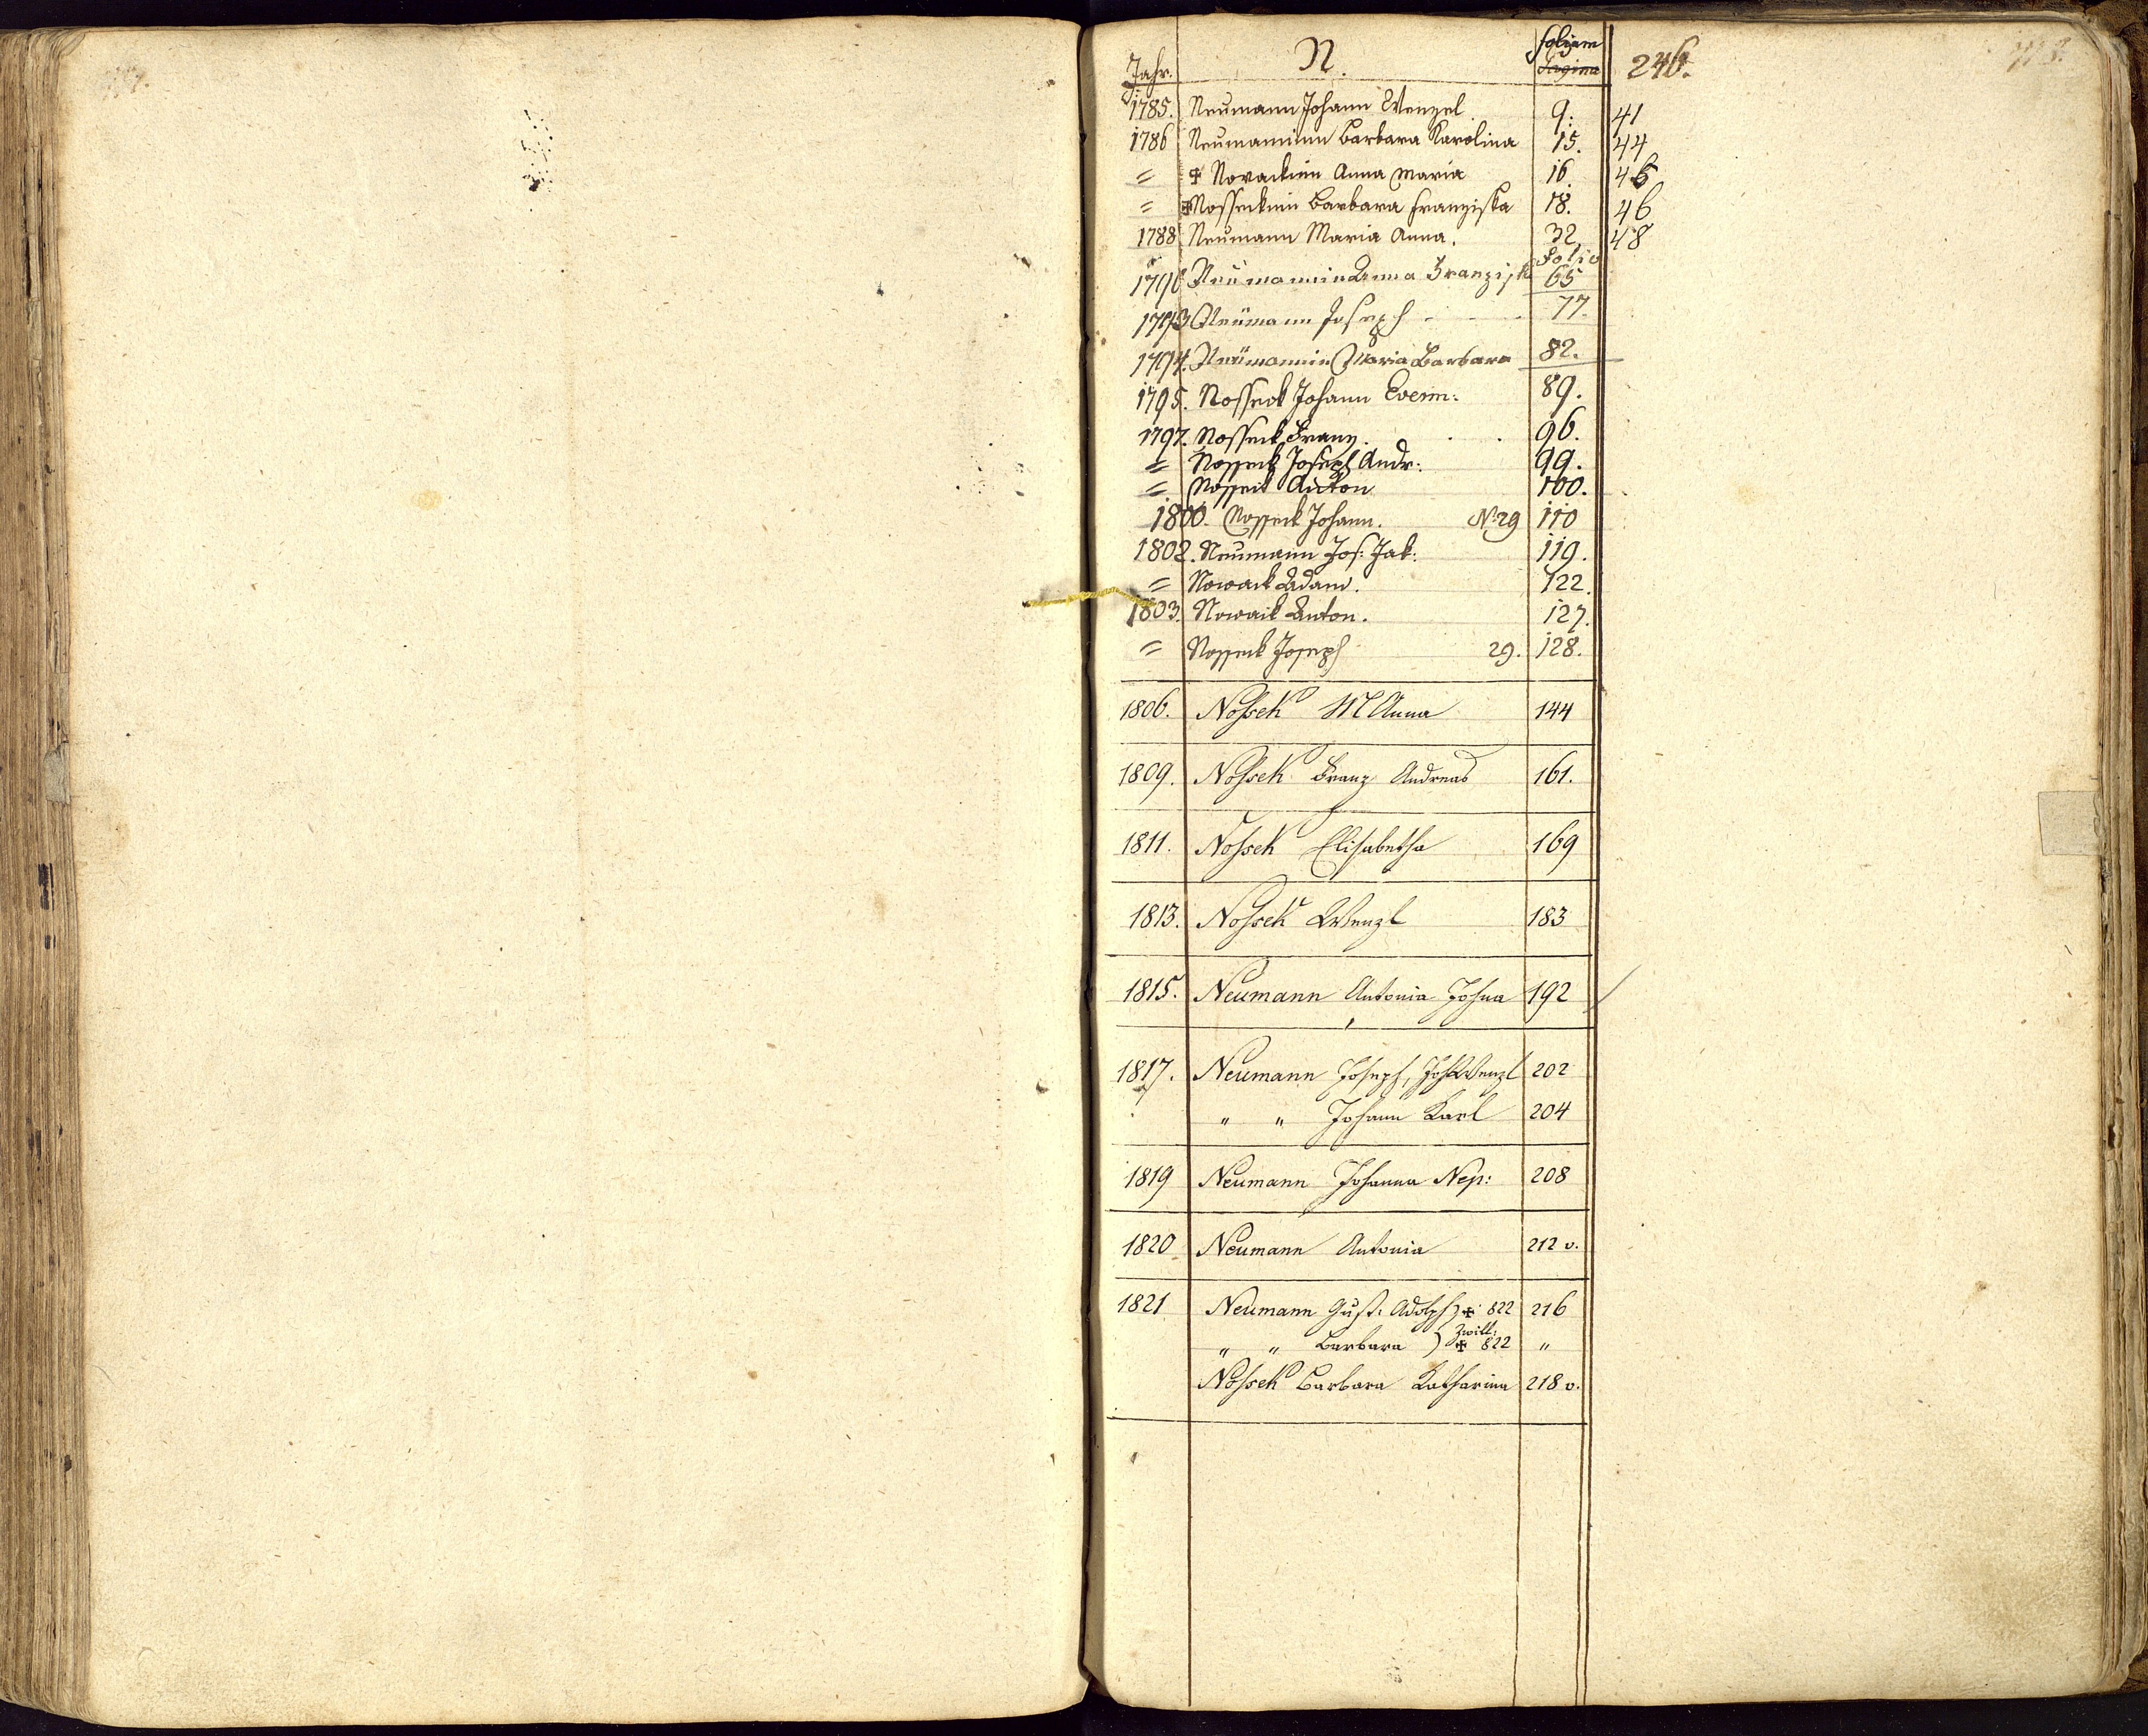 Jahr. N. folium 246.
pagina
1785. Neumann Johann Wenzel 9. 41
1786 Neumaninn Barbara Karolina 15. 44
= ✠ Novackinn Anna Maria 16. 45
= ✠ Nosseckinn Barbara Franziska 18. 46
1788 Neumann Maria Anna. 32. 48
Folio
Neumannin Anna Franziska 65
1793 Neumann Joseph - - - 77.
1794. Neumannin Maria Barbara 82.
1795. Nosseck Johann 89.
1797. Nosseck Franz. . . 96.
= Nosseck Joseph Andr: 99.
= Nosseck Anton 100.
1800. Nosseck Johann. No 29 110
1802. Neumann Jos: Jak: 119.
= Nowack Adam. 122.
1803. Nowack Anton. 127.
= Nosseck Joseph 29. 128.
1806. Nossek M Anna 144
1809. Nossek Franz Andreas 161.
1811. Nossek Elisabetha 169
1813. Nossek Wenzl 183
1815. Neumann Antonia 192
1817. Neumann Joseph, Joh Wenzl 202
" " Johann Karl 204
1819 Neumann Johanna Nep: 208
1820 Neumann Antonia 212 v.
1821 Neumann Gust: Adolph) ✠ 822 216
Zwill:
" " Barbara ) ✠ 822 "
Nossek Barbara Katharina 218 v.